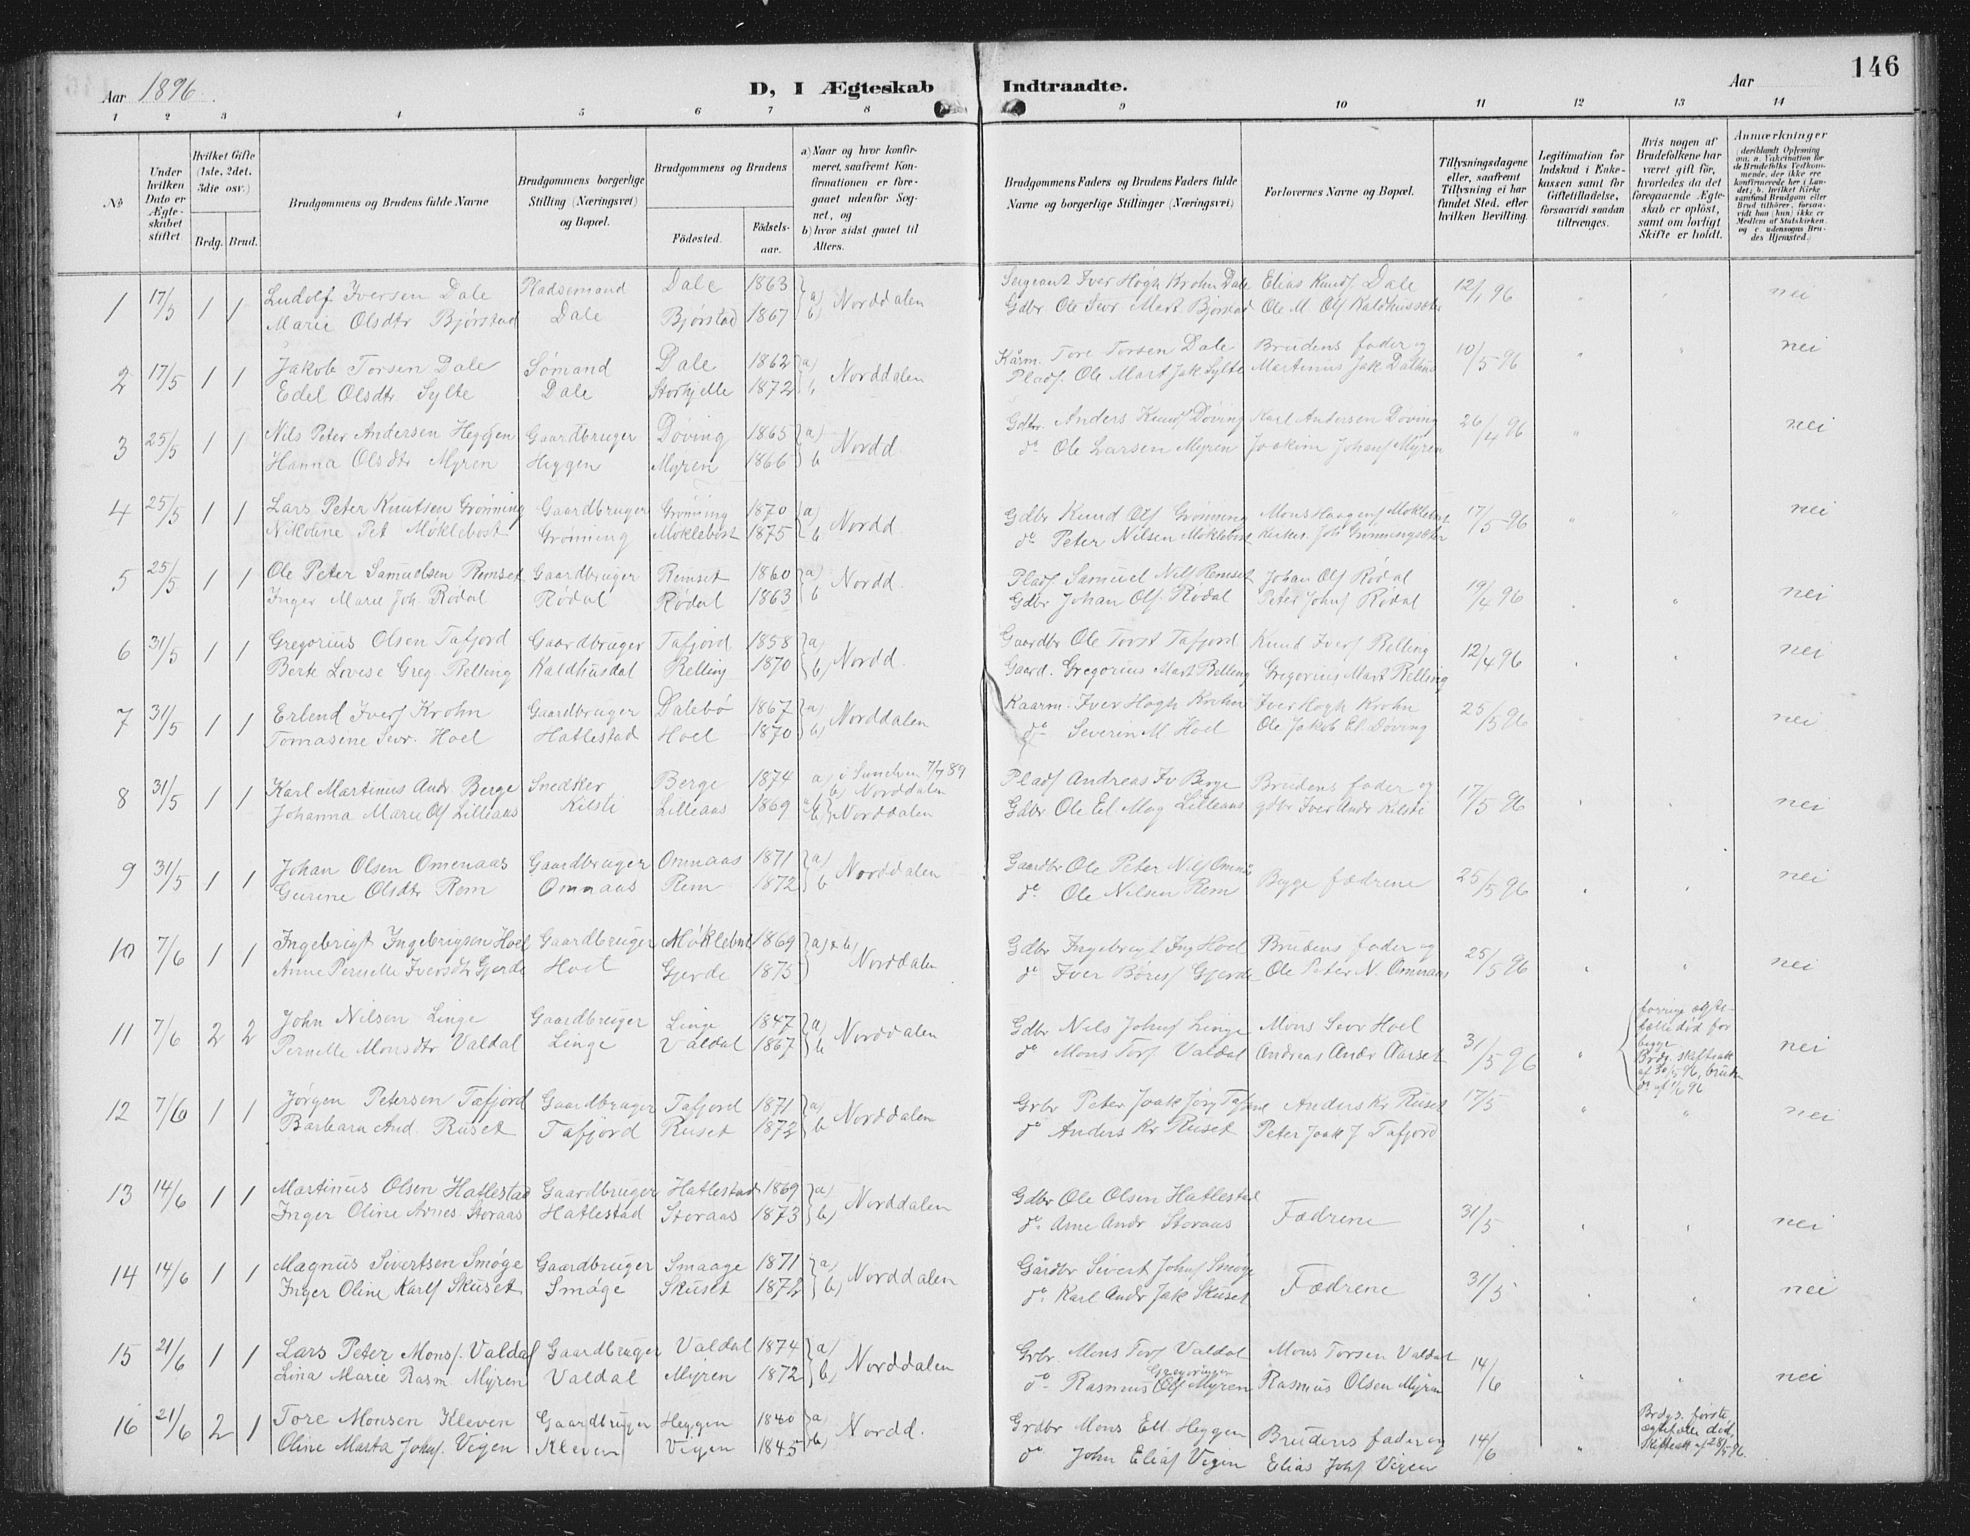 146
Aar 1896.
D, I Ægteskab Indtraadte.
Aar
1 2 3 4 5 6 7 8 9 10 11 12 13 14
№
Under hvilken Dato er Ægteskabet stiftet.
Hvilket Gifte (1ste, 2det, 3die osv.)
Brdg. Brud.
Brudgommens og Brudens fulde Navne
Brudgommens borgerlige Stilling (Næringsvei) og Bopæl.
Brudgommens og Brudens
Födested.
Födselsaar.
a) Naar og hvor konfirmeret, saafremt Konfirmationen er foregaaet udenfor Sognet, og
b) hvor sidst gaaet til Alters.
Brudgommens Faders og Brudens Faders fulde Navne og borgerlige Stillinger (Næringsvei)
Forlovernes Navne og Bopæl.
Tillysningsdagene eller, saafremt Tillysning ei har fundet Sted, efter hvilken Bevilling.
Legitimation for Indskud i Enkekassen samt for Giftetilladelse, forsaavidt saadan tiltrænges.
Hvis nogen af Brudefolkene har været gift för, hvorledes da det foregaaende Ægteskab er oplöst, samt om lovligt Skifte er holdt.
Anmærkninger (deriblandt Oplysning om: a. Vakcination for de Brudefolks Vedkommende, der ikke ere konfirmerede her i Landet; b. hvilket Kirkesamfund Brudgom eller Brud tilhörer, forsaavidt han (hun) ikke er Medlem af Statskirken, og c. udensogns Brudes Hjemsted.)
1 17/5 1 1 Ludolf Iversen Dale Pladsemand Dale 1863 a) Norddalen Sergeant Iver Høgh Krohn Dale Elias Knuds Dale 12/ 96 " " nei
Marie Olsdtr Bjørstad Dale Bjørstad 1867 b) Gdbr Ole Mart Bjørstad Ole M Ols
2 17/5 1 1 Jakob Torsen Dale Sømand Dale 1862 a) Norddalen Kårm. Tore Torsen Dale Brudens fader og 10/5 96 " " nei
Edel Olsdtr Sylte Dale Storhjelle 1872 b Plads. Ole Mart Jak Sylte Martinus Jak
3 25/5 1 1 Nils Peter Andersen Heggen Gaardbruger Døving 1865 a) Nordd. Gdbr. Anders Knuds Døving Karl Andersen Døving 26/4 96 " nei
Hanna Olsdtr Myren Heggen Myren 1866 b do Ole Larsen Myren Joakim Johans Myren
4 25/5 1 1 Lars Peter Knutsen Grønning Gaardbruger Grønning 1870 a) Nordd. Gdbr Knud Ols Grønning Mons 17/5 96 " " nei
Nikoline Pet Moklebost Grønning Moklebost 1875 b do Peter Nilsen Moklebost
5 25/5 1 1 Ole Peter Samuelsen Remset Gaardbruger Remset 1860 a) Nordd. Plads. Samuel Nils Remset Johan Ols Rødal 19/4 96 " " nei
Inger Marie Joh. Rødal Rødal Rødal 1863 b Gdbr Johan Ols. Rødal Peter Johs Rødal
6 31/5 1 1 Gregorius Olsen Tafjord Gaardbruger Tafjord 1858 a) Nordd. Gaardbr Ole Torst Tafjord Knud Ivers Relling 12/4 96 " " nei
Berte Lovise Greg. Relling Kaldhusdal Relling 1870 b) Gaard. Gregorius Mart Relling Gregorius Mart Relling
7 31/5 1 1 Erlend Ivers Krohn Gaardbruger Dalebø 1867 a) Norddalen Kaarm. Iver Høgh Krohn Iver Høgh Krohn 25/5 96 nei
Tomasine Sevr. Hoel Hatlestad Hoel 1870 b) do Severin M. Hoel Ole Jakob El. Døving
8 31/5 1 1 Karl Martinus Andr. Berge Snedker Berge 1874 a) i 89 Plads Andreas Iv Berge Brudens fader og 17/5 96 " " nei
b) Norddalen
Johanna Marie Ols Lilleaas Kilsti Lilleaas 1869 a) b) Norddalen Gdbr Ole El. Mag Lilleaas gdbr Iver Andr Kilsti
9 31/5 1 1 Johan Olsen Omenaas Gaardbruger Ommaas 1871 a) Norddalen Gaardbr Ole Peter Nils Begge fædrene 25/5 96 " " nei
Gurine Olsdtr Rem Ommaas Rem 1872 b do Ole Nilsen Rem
10 7/6 1 1 Ingebrigt Ingebrigsen Hoel Gaardbruger Møklebust 1869 a) & b) Norddalen Gdbr Ingebrigt Ing Hoel Brudens fader og 25/5 96 " " nei
Anne Pernelle Iversdtr Gjerde Hoel Gjerde 1875 do Iver Børes Gjerde Ole Peter N. Ommaas
11 7/6 2 2 John Nilsen Linge Gaardbruger Linge 1847 a) Norddalen Gdbr Nils Johns Linge Mons Sevr Hoel 31/5 96 " forrige ægtefælle død for begge Brdg. skifteatt af 30/5 96, bruden do af 1/6 96 nei
Pernelle Monsdtr Valdal Linge Valdal 1867 b do Mons Tors Valdal Andreas Andr Aarset
12 7/6 1 1 Jørgen Petersen Tafjord Gaardbruger Tafjord 1871 a) Norddalen Grbr Peter Joak Jørg Anders Kr Ruset 17/5 " " nei
Barbara And. Ruset Tafjord Ruset 1872 b do Anders Kr Ruset Peter Joak J Tafjord
13 14/6 1 1 Martinus Olsen Hatlestad Gaardbruger Hatlestad 1869 a) Norddalen Gdbr Ole Olsen Hatlestad Fædrene 31/5 " " nei
Inger Oline Arnes. Storaas Hatlestad Storaas 1873 b) do Arne Andr Storaas
14 14/6 1 1 Magnus Sivertsen Smøge Gaardbruger Smaage 1871 a) Norddalen Gårdbr Sivert Johns Smøge Fædrene 31/5 " " nei
Inger Oline Karls Skuset Smøge Skuset 1872 b) do Karl Andr Jak Skuset
15 21/6 1 1 Lars Peter Mons. Valdal Gaardbruger Valdal 1874 a) Norddalen Grbr. Mons Tors Valdal Mons Torsen Valdal 14/6 " " nei
Lina Marie Rasm Myren Valdal Myren 1872 b) do Rasmus Ols Myren Rasmus Olsen Myren
16 21/6 2 1 Tore Monsen Kleven Gaardbruger Heggen 1840 a) Nordd. Grdbr Mons Ell. Heggen Brudens fader og 14/6 " Brdgs. første ægtefælle død, Skifteatt af 28/5 96.
Oline Marta Johns. Vigen Kleven Vigen 1845 b) do John Elias Vigen Elias Johs Vigen